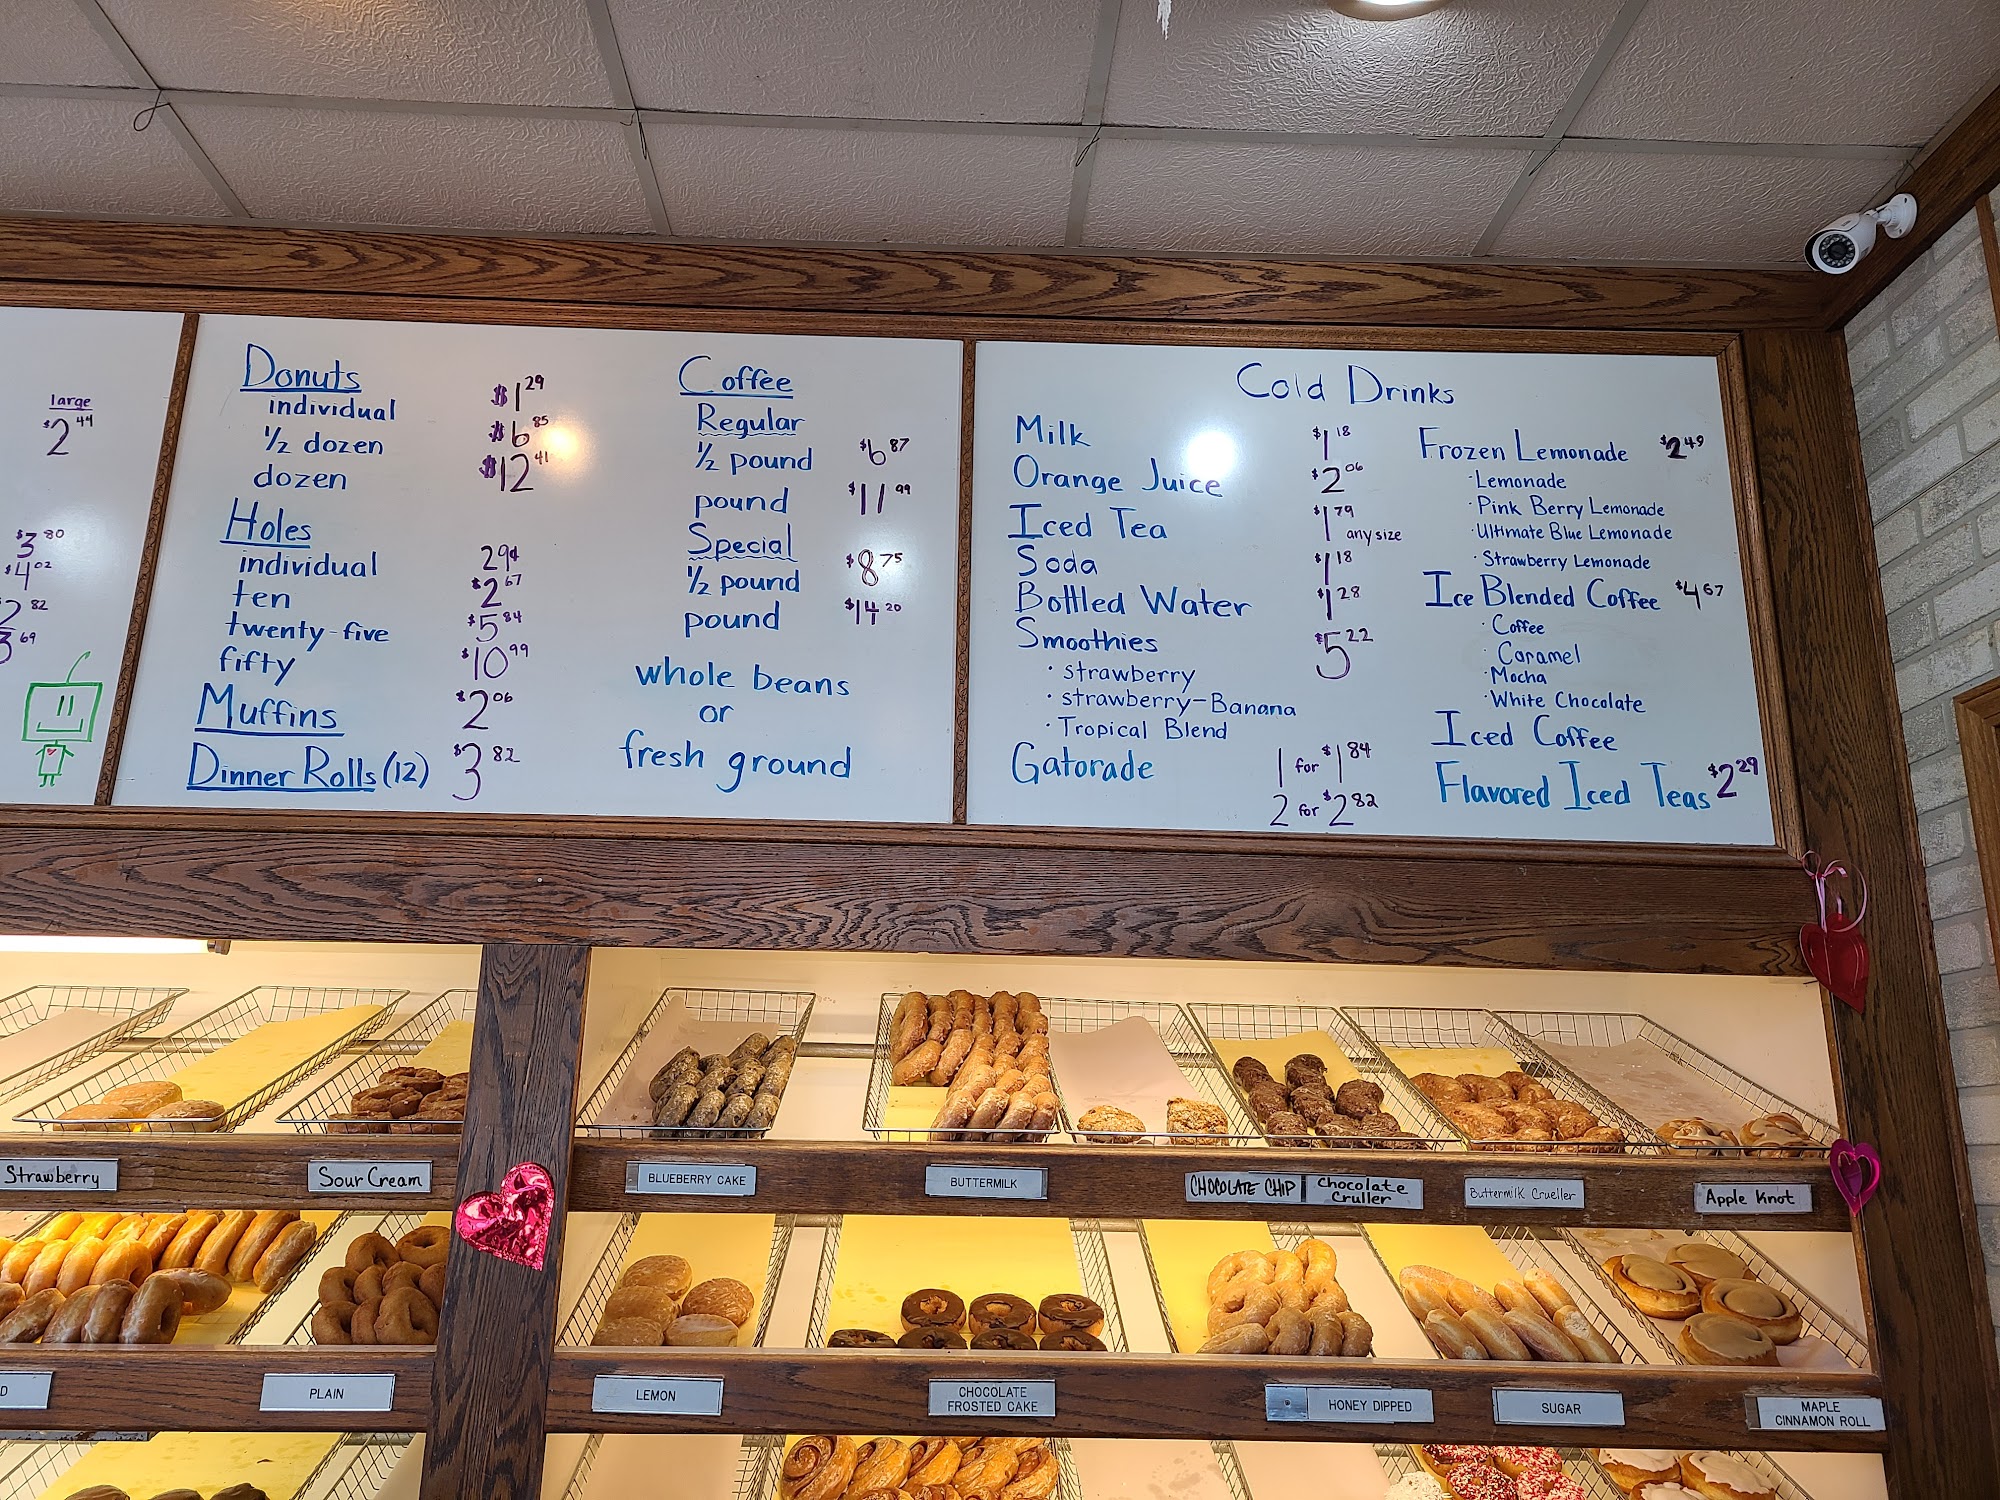 large
$2.44
$3.80
$4.02
2.82
3.69
Donuts
individual $1.29
1/2 dozen $6.85
dozen $12.41
Holes
individual 29¢
ten $2.67
twenty-five $5.84
fifty $10.99
Muffins $2.06
Dinner Rolls (12) $3.82
Coffee
Regular
1/2 pound $6.87
pound $11.99
Special
1/2 pound $8.75
pound $14.20
whole beans
or
fresh ground
Cold Drinks
Milk $1.18
Orange Juice $2.06
Iced Tea $1.79 any size
Soda $1.18
Bottled Water $1.28
Smoothies $5.22
· strawberry
· strawberry-Banana
· Tropical Blend
Gatorade 1 for $1.84
2 for $2.82
Frozen Lemonade $2.49
· Lemonade
· Pink Berry Lemonade
· Ultimate Blue Lemonade
· Strawberry Lemonade
Ice Blended Coffee $4.67
· Coffee
· Caramel
· Mocha
· White Chocolate
Iced Coffee
Flavored Iced Teas $2.29
Strawberry
Sour Cream
BLUEBERRY CAKE
BUTTERMILK
CHOCOLATE CHIP
Chocolate
Cruller
Buttermilk Crueller
Apple Knot
D
PLAIN
LEMON
CHOCOLATE
FROSTED CAKE
HONEY DIPPED
SUGAR
MAPLE
CINNAMON ROLL